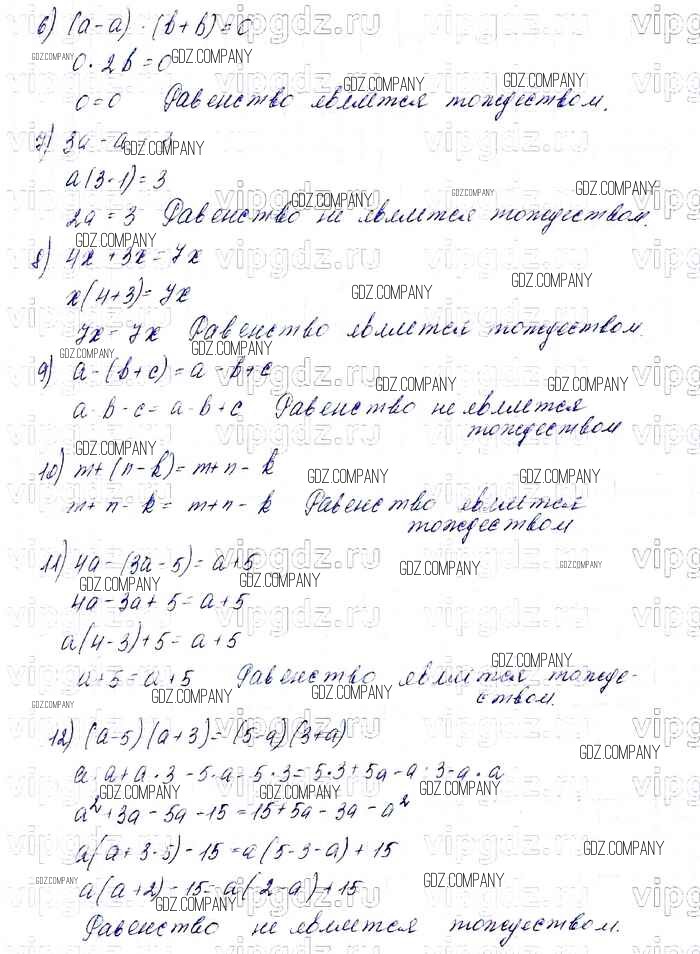 6) (a-a)·(b+b)=0
0·2b=0
0=0 Равенство является тождеством.
7) 3a-a=3
a(3-1)=3
2a=3 Равенство не является тождеством.
8) 4x+3x=7x
x(4+3)=7x
7x=7x Равенство является тождеством.
9) a-(b+c)=a-b+c
a-b-c=a-b+c Равенство не является
тождеством
10) m+(n-k)=m+n-k
m+n-k=m+n-k Равенство является
тождеством
11) 4a-(3a-5)=a+5
4a-3a+5=a+5
a(4-3)+5=a+5
a+5=a+5 Равенство является тожде-
ством.
12) (a-5)(a+3)=(5-a)(3+a)
a·a+a·3-5·a-5·3=5·3+5a-a·3-a·a
a²+3a-5a-15=15+5a-3a-a²
a(a+3-5)-15=a(5-3-a)+15
a(a+2)-15=a(2-a)+15
Равенство не является тождеством.